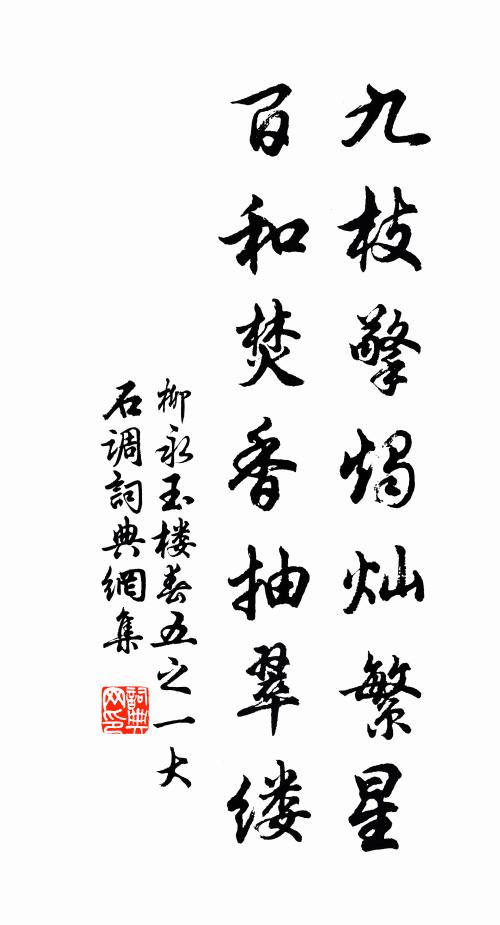 九枝擎烛灿繁星
百和焚香抽翠缕
柳永玉楼春五之一大
石调词典网集
詞典网印